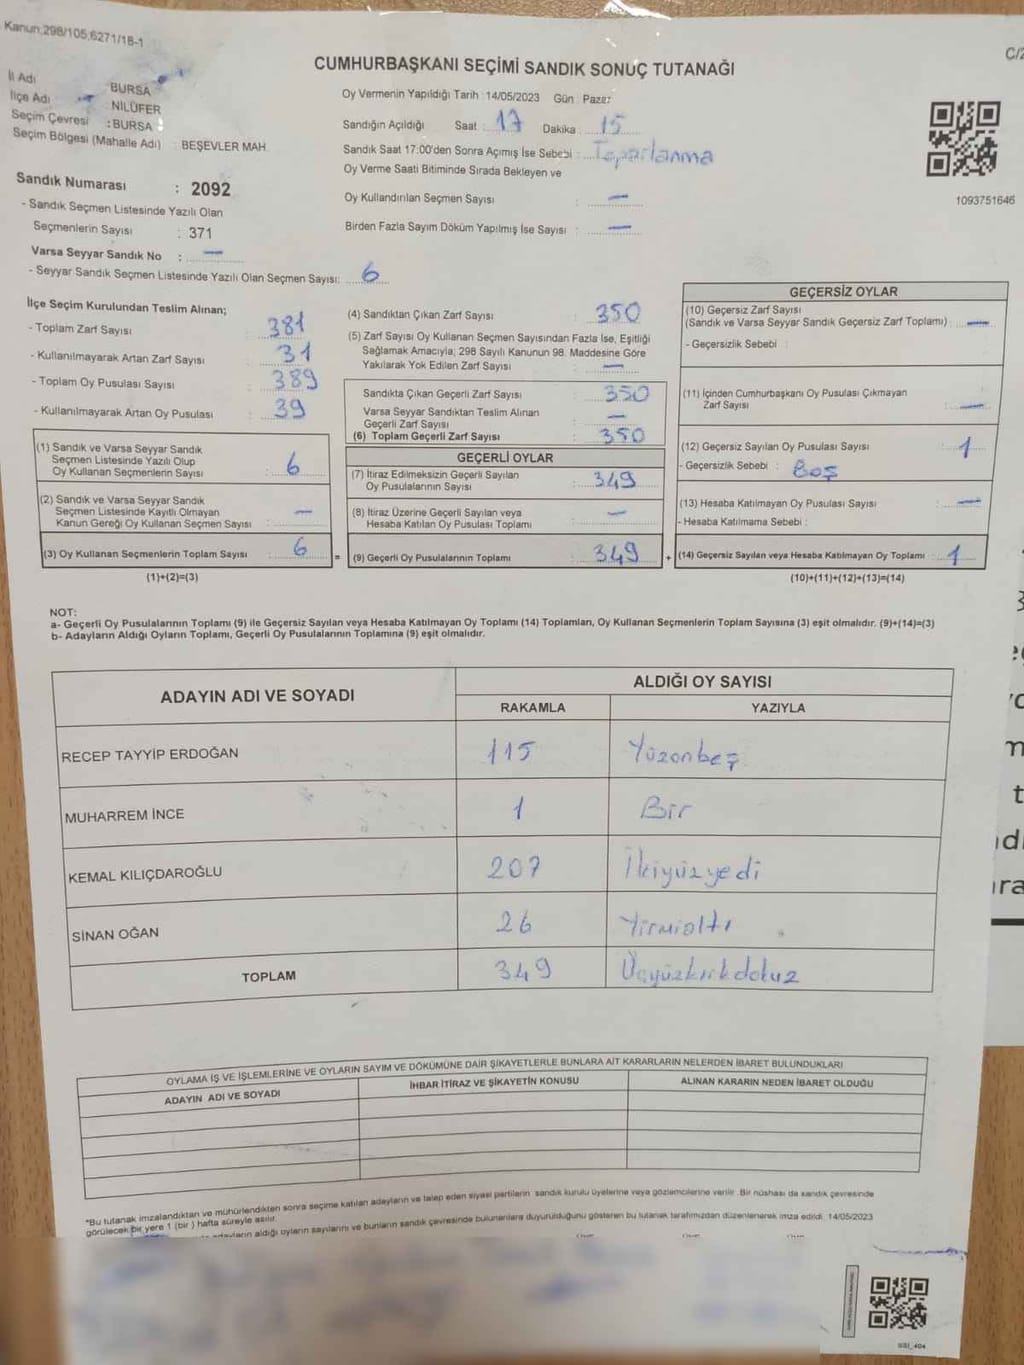 Kanun:298/105,6271/18-1
C/2
CUMHURBAŞKANI SEÇİMİ SANDIK SONUÇ TUTANAĞI
İl Adı BURSA
İlçe Adı NİLÜFER
Seçim Çevresi : BURSA
Seçim Bölgesi (Mahalle Adı) : BEŞEVLER MAH.
Sandık Numarası : 2092
- Sandık Seçmen Listesinde Yazılı Olan
Seçmenlerin Sayısı : 371
Varsa Seyyar Sandık No : —
- Seyyar Sandık Seçmen Listesinde Yazılı Olan Seçmen Sayısı: 6
Oy Vermenin Yapıldığı Tarih : 14/05/2023 Gün : Pazar
Sandığın Açıldığı Saat : 17 Dakika : 15
Sandık Saat 17:00'den Sonra Açımış İse Sebebi : Toparlanma
Oy Verme Saati Bitiminde Sırada Bekleyen ve
Oy Kullandırılan Seçmen Sayısı : —
Birden Fazla Sayım Döküm Yapılmış İse Sayısı : —
1093751646
İlçe Seçim Kurulundan Teslim Alınan;
- Toplam Zarf Sayısı : 381
- Kullanılmayarak Artan Zarf Sayısı : 31
- Toplam Oy Pusulası Sayısı : 389
- Kullanılmayarak Artan Oy Pusulası : 39
(1) Sandık ve Varsa Seyyar Sandık
Seçmen Listesinde Yazılı Olup
Oy Kullanan Seçmenlerin Sayısı : 6
(2) Sandık ve Varsa Seyyar Sandık
Seçmen Listesinde Kayıtlı Olmayan
Kanun Gereği Oy Kullanan Seçmen Sayısı : —
(3) Oy Kullanan Seçmenlerin Toplam Sayısı : 6
(1)+(2)=(3)
(4) Sandıktan Çıkan Zarf Sayısı : 350
(5) Zarf Sayısı Oy Kullanan Seçmen Sayısından Fazla İse, Eşitliği
Sağlamak Amacıyla; 298 Sayılı Kanunun 98. Maddesine Göre
Yakılarak Yok Edilen Zarf Sayısı : —
Sandıkta Çıkan Geçerli Zarf Sayısı : 350
Varsa Seyyar Sandıktan Teslim Alınan
Geçerli Zarf Sayısı : —
(6) Toplam Geçerli Zarf Sayısı : 350
GEÇERLİ OYLAR
(7) İtiraz Edilmeksizin Geçerli Sayılan
Oy Pusulalarının Sayısı : 349
(8) İtiraz Üzerine Geçerli Sayılan veya
Hesaba Katılan Oy Pusulası Toplamı : —
= (9) Geçerli Oy Pusulalarının Toplamı : 349
GEÇERSİZ OYLAR
(10) Geçersiz Zarf Sayısı
(Sandık ve Varsa Seyyar Sandık Geçersiz Zarf Toplamı) : —
- Geçersizlik Sebebi :
(11) İçinden Cumhurbaşkanı Oy Pusulası Çıkmayan
Zarf Sayısı : —
(12) Geçersiz Sayılan Oy Pusulası Sayısı : 1
- Geçersizlik Sebebi : Boş
(13) Hesaba Katılmayan Oy Pusulası Sayısı : —
- Hesaba Katılmama Sebebi :
+ (14) Geçersiz Sayılan veya Hesaba Katılmayan Oy Toplamı : 1
(10)+(11)+(12)+(13)=(14)
NOT:
a- Geçerli Oy Pusulalarının Toplamı (9) ile Geçersiz Sayılan veya Hesaba Katılmayan Oy Toplamı (14) Toplamları, Oy Kullanan Seçmenlerin Toplam Sayısına (3) eşit olmalıdır. (9)+(14)=(3)
b- Adayların Aldığı Oyların Toplamı, Geçerli Oy Pusulalarının Toplamına (9) eşit olmalıdır.
ADAYIN ADI VE SOYADI ALDIĞI OY SAYISI
RAKAMLA YAZIYLA
RECEP TAYYİP ERDOĞAN 115 Yüzonbeş
MUHARREM İNCE 1 Bir
KEMAL KILIÇDAROĞLU 207 İkiyüzyedi
SİNAN OĞAN 26 Yirmialtı
TOPLAM 349 Üçyüzkırkdokuz
OYLAMA İŞ VE İŞLEMLERİNE VE OYLARIN SAYIM VE DÖKÜMÜNE DAİR ŞİKAYETLERLE BUNLARA AİT KARARLARIN NELERDEN İBARET BULUNDUKLARI
ADAYIN ADI VE SOYADI İHBAR İTİRAZ VE ŞİKAYETİN KONUSU ALINAN KARARIN NEDEN İBARET OLDUĞU
*Bu tutanak imzalandıktan ve mühürlendikten sonra seçime katılan adayların ve talep eden siyasi partilerin sandık kurulu üyelerine veya gözlemcilerine verilir. Bir nüshası da sandık çevresinde
görülecek bir yere 1 (bir) hafta süreyle asılır.
adayların aldığı oyların sayılarını ve bunların sandık çevresinde bulunanlara duyurulduğunu gösteren bu tutanak tarafımızdan düzenlenerek imza edildi. 14/05/2023